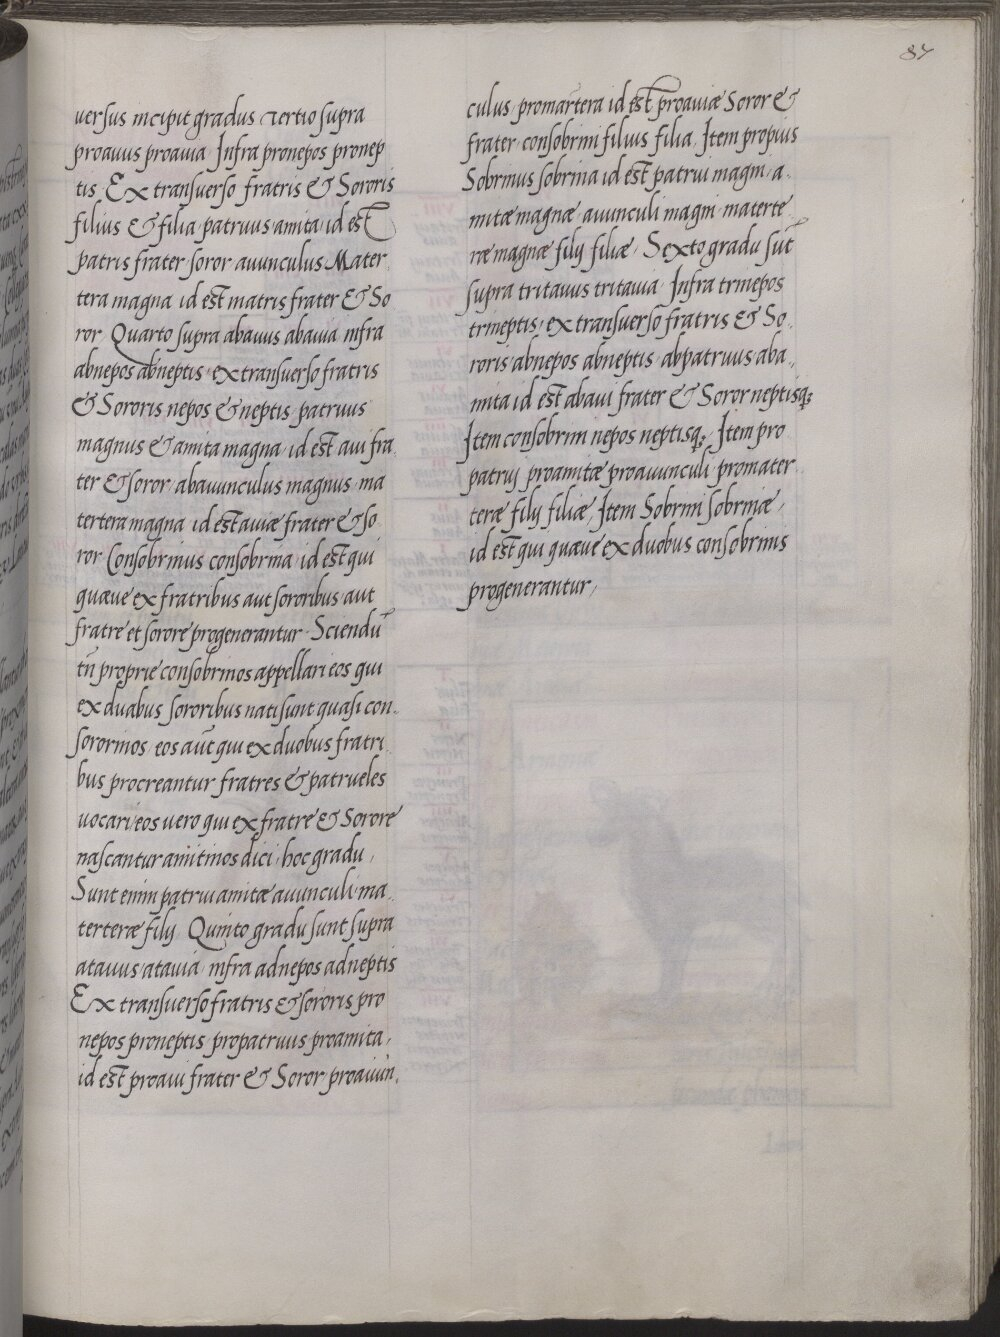 87
uersus incipit gradus tertio supra
proauus proauia Infra pronepos pronep
tis Ex transuerso fratris & Sororis
filius & filia patruus amita id est
patris frater soror auunculus Mater
tera magna id est matris frater & So
ror Quarto supra abauus abauia infra
abnepos abneptis ex transuerso fratris
& Sororis nepos & neptis patruus
magnus & amita magna id est aui fra
ter & soror abauunculus magnus ma
tertera magna id est auiæ frater & so
ror Consobrinus consobrina id est qui
quæue ex fratribus aut sororibus aut
fratre et sorore progenerantur Sciendū
tn̄ proprie consobrinos appellari eos qui
ex duabus sororibus nati sunt quasi con
sororinos eos aūt qui ex duobus fratri
bus procreantur fratres & patrueles
uocari eos uero qui ex fratre & Sorore
nascantur amitinos dici hoc gradu
Sunt enim patrui amitæ auunculi ma
terteræ filij Quinto gradu sunt supra
atauus atauia infra adnepos adneptis
Ex transuerso fratris & sororis pro
nepos proneptis propatruus proamita
id est proaui frater & Soror proauun
culus promartera id est proauiæ Soror &
frater consobrini filius filia Item propius
Sobrinus sobrina id est patrui magni a
mitæ magnæ auunculi magni materte
ræ magnæ filij filiæ Sexto gradu sūt
supra tritauus tritauia Infra trinepos
trineptis ex transuerso fratris & So
roris abnepos abneptis abpatruus aba
mita id est abaui frater & Soror neptisq;
Item consobrini nepos neptisq; Item pro
patrui proamitæ proauunculi promater
teræ filij filiæ Item Sobrini sobrinæ
id est qui quæue ex duobus consobrinis
progenerantur